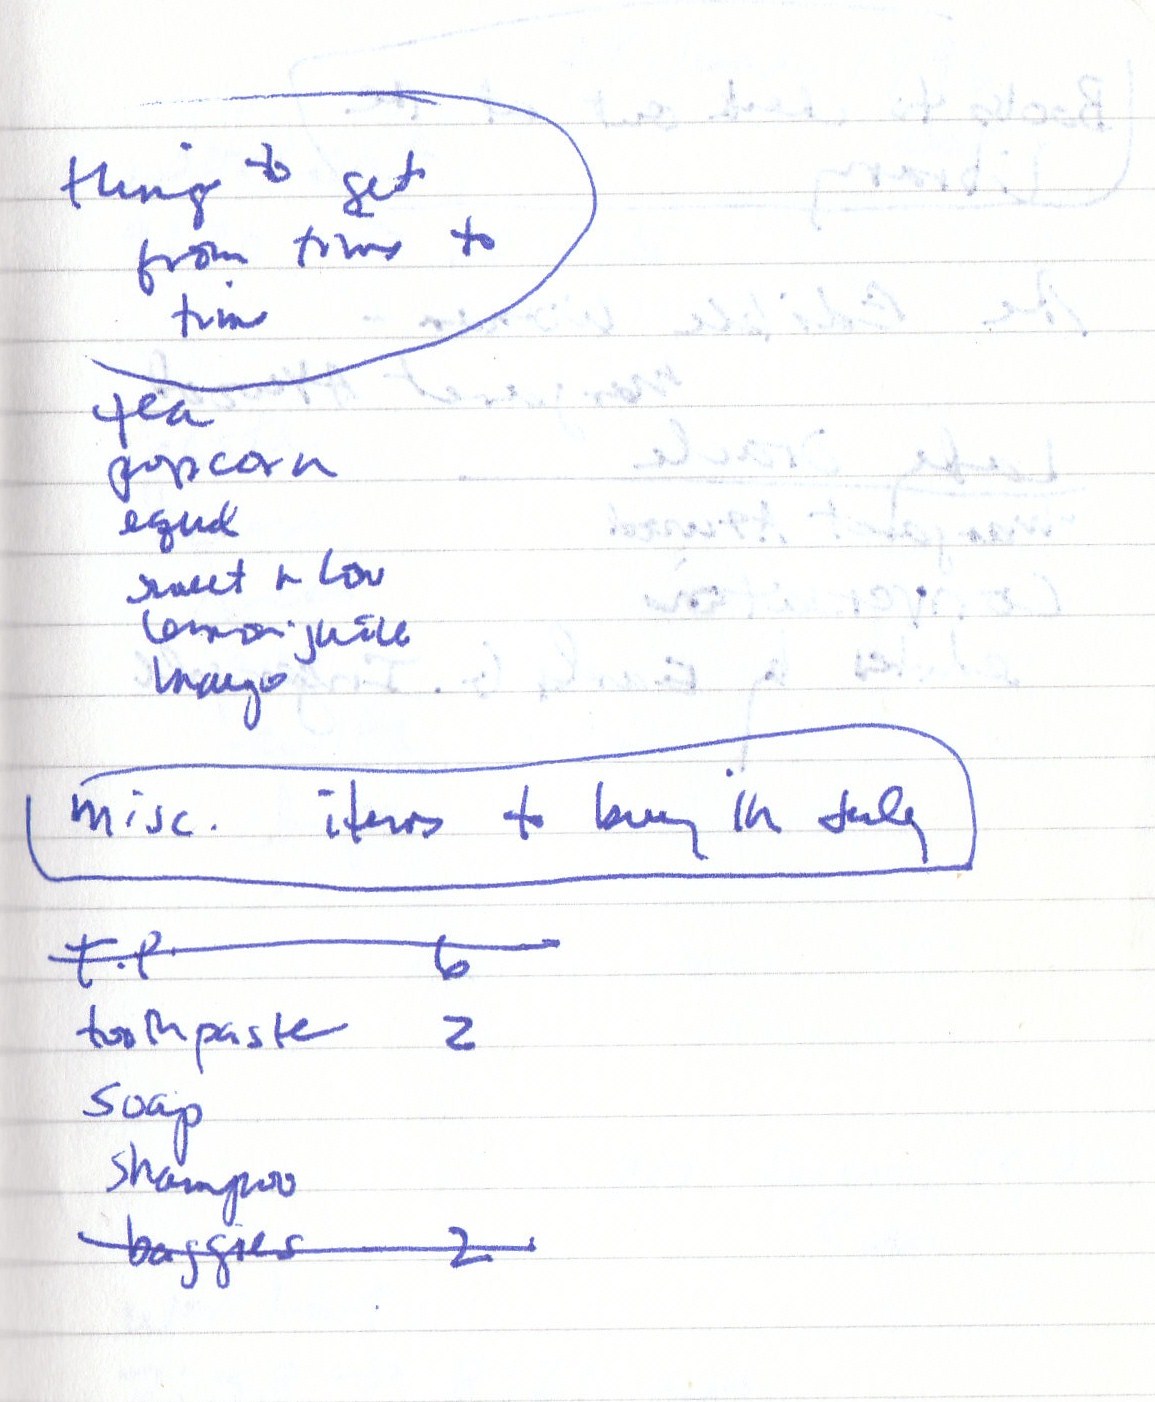 things to get
from time to
time
tea
popcorn
equal
sweet n low
lemon juice
mayo
misc. items to buy in July
T.P. 6
toothpaste 2
soap
shampoo
baggies 2